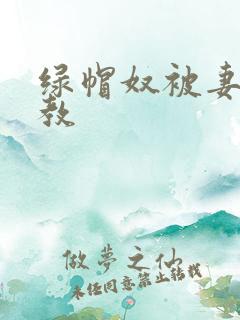 绿帽奴被妻
教
做夢之仙
未经同意禁止转载